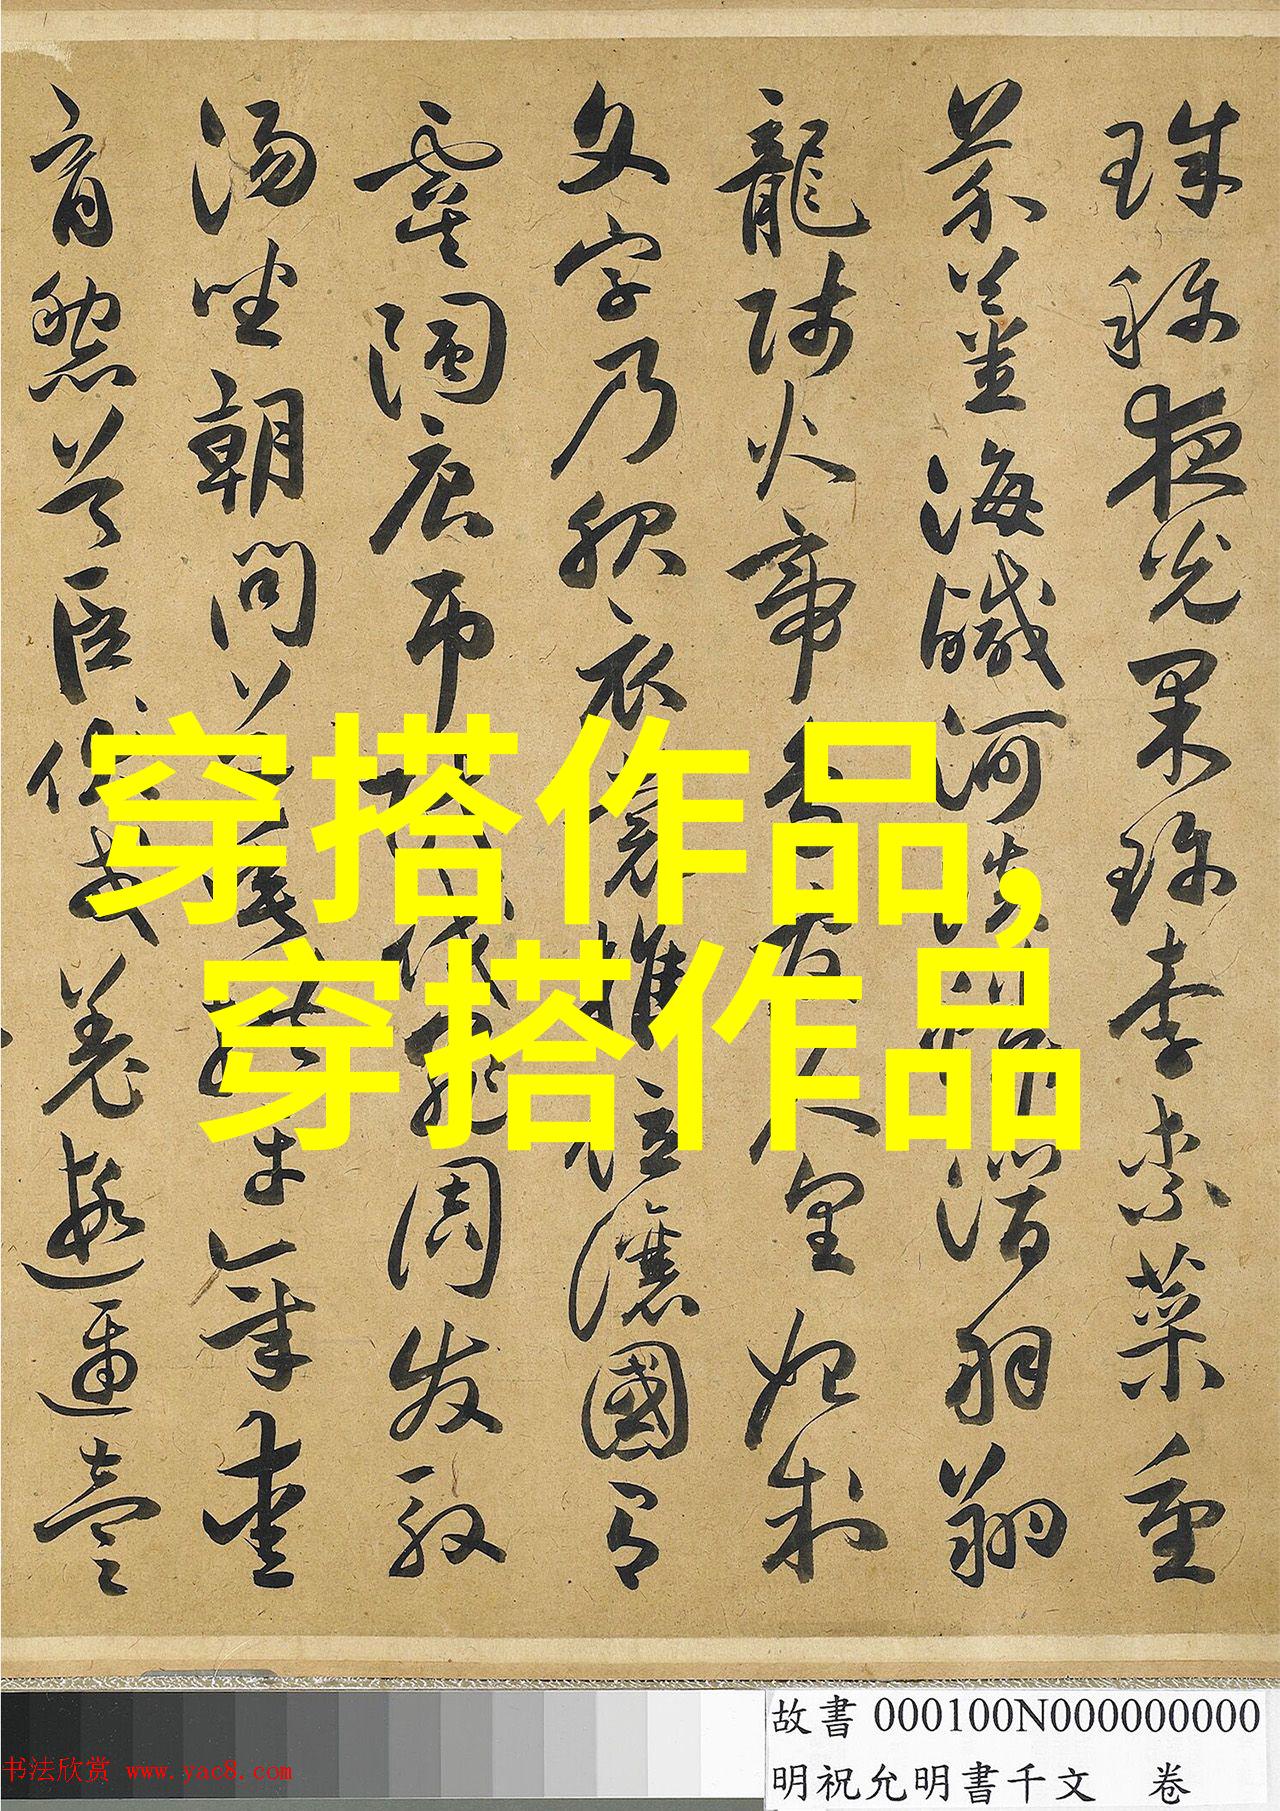 珠稱夜光果珍李柰菜重
芥薑海鹹河淡鱗潛羽翔
龍師火帝鳥官人皇始制
文字乃服衣裳推位讓國有
虞陶唐弔民伐罪周发殷
湯坐朝問道垂拱平章愛
育黎首臣伏戎羌遐邇壹
穿搭作品,
穿搭作品
故書 000100N000000000
明祝允明書千文 卷
书法欣赏 www.yac8.com